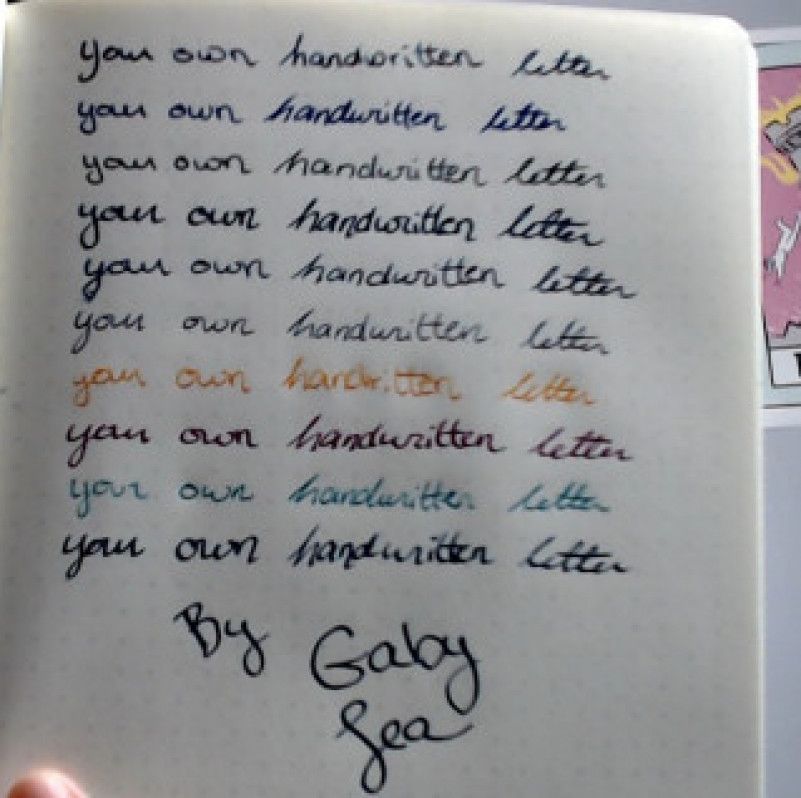 your own handwritten letter
your own handwritten letter
your own handwritten letter
your own handwritten letter
your own handwritten letter
your own handwritten letter
your own handwritten letter
your own handwritten letter
your own handwritten letter
your own handwritten letter
By Gaby
Sea